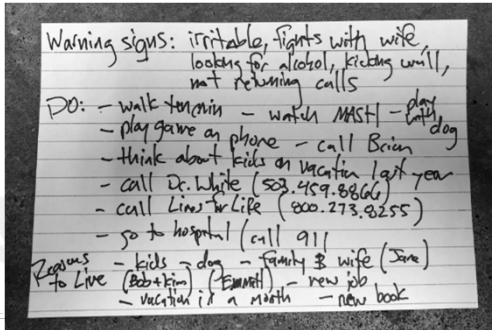 Warning signs: irritable, fights with wife,
looking for alcohol, kicking wall,
not returning calls
DO: - walk ten min - watch MASH - play with dog
- play game on phone - call Brian
- think about kids on vacation last year
- call Dr. White (503.459.8866)
- call Lines for Life (800.273.8255)
- go to hospital (call 911
Reasons to Live - kids - dog - family & wife (Jane)
(Bob+Kim) (Emmett) - new job
- vacation in a month - new book